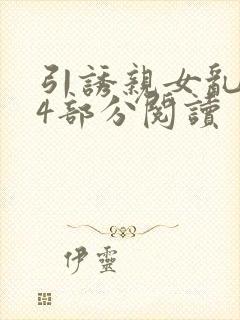 引誘親女亂
4部分閱讀
伊靈